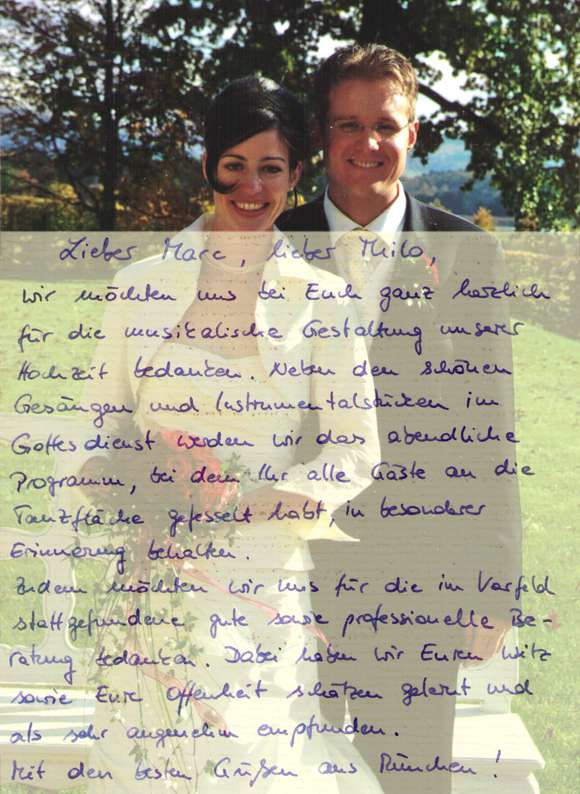 Lieber Marc, lieber Thilo,
wir möchten uns bei Euch ganz herzlich
für die musikalische Gestaltung unserer
Hochzeit bedanken. Neben den schönen
Gesängen und Instrumentalstücken im
Gottesdienst werden wir das abendliche
Programm, bei dem Ihr alle Gäste an die
Tanzfläche gefesselt habt, in besonderer
Erinnerung behalten.
Zudem möchten wir uns für die im Vorfeld
stattgefundene gute sowie professionelle Be-
ratung bedanken. Dabei haben wir Euren Witz
sowie Eure Offenheit schätzen gelernt und
als sehr angenehm empfunden.
Mit den besten Grüßen aus München!